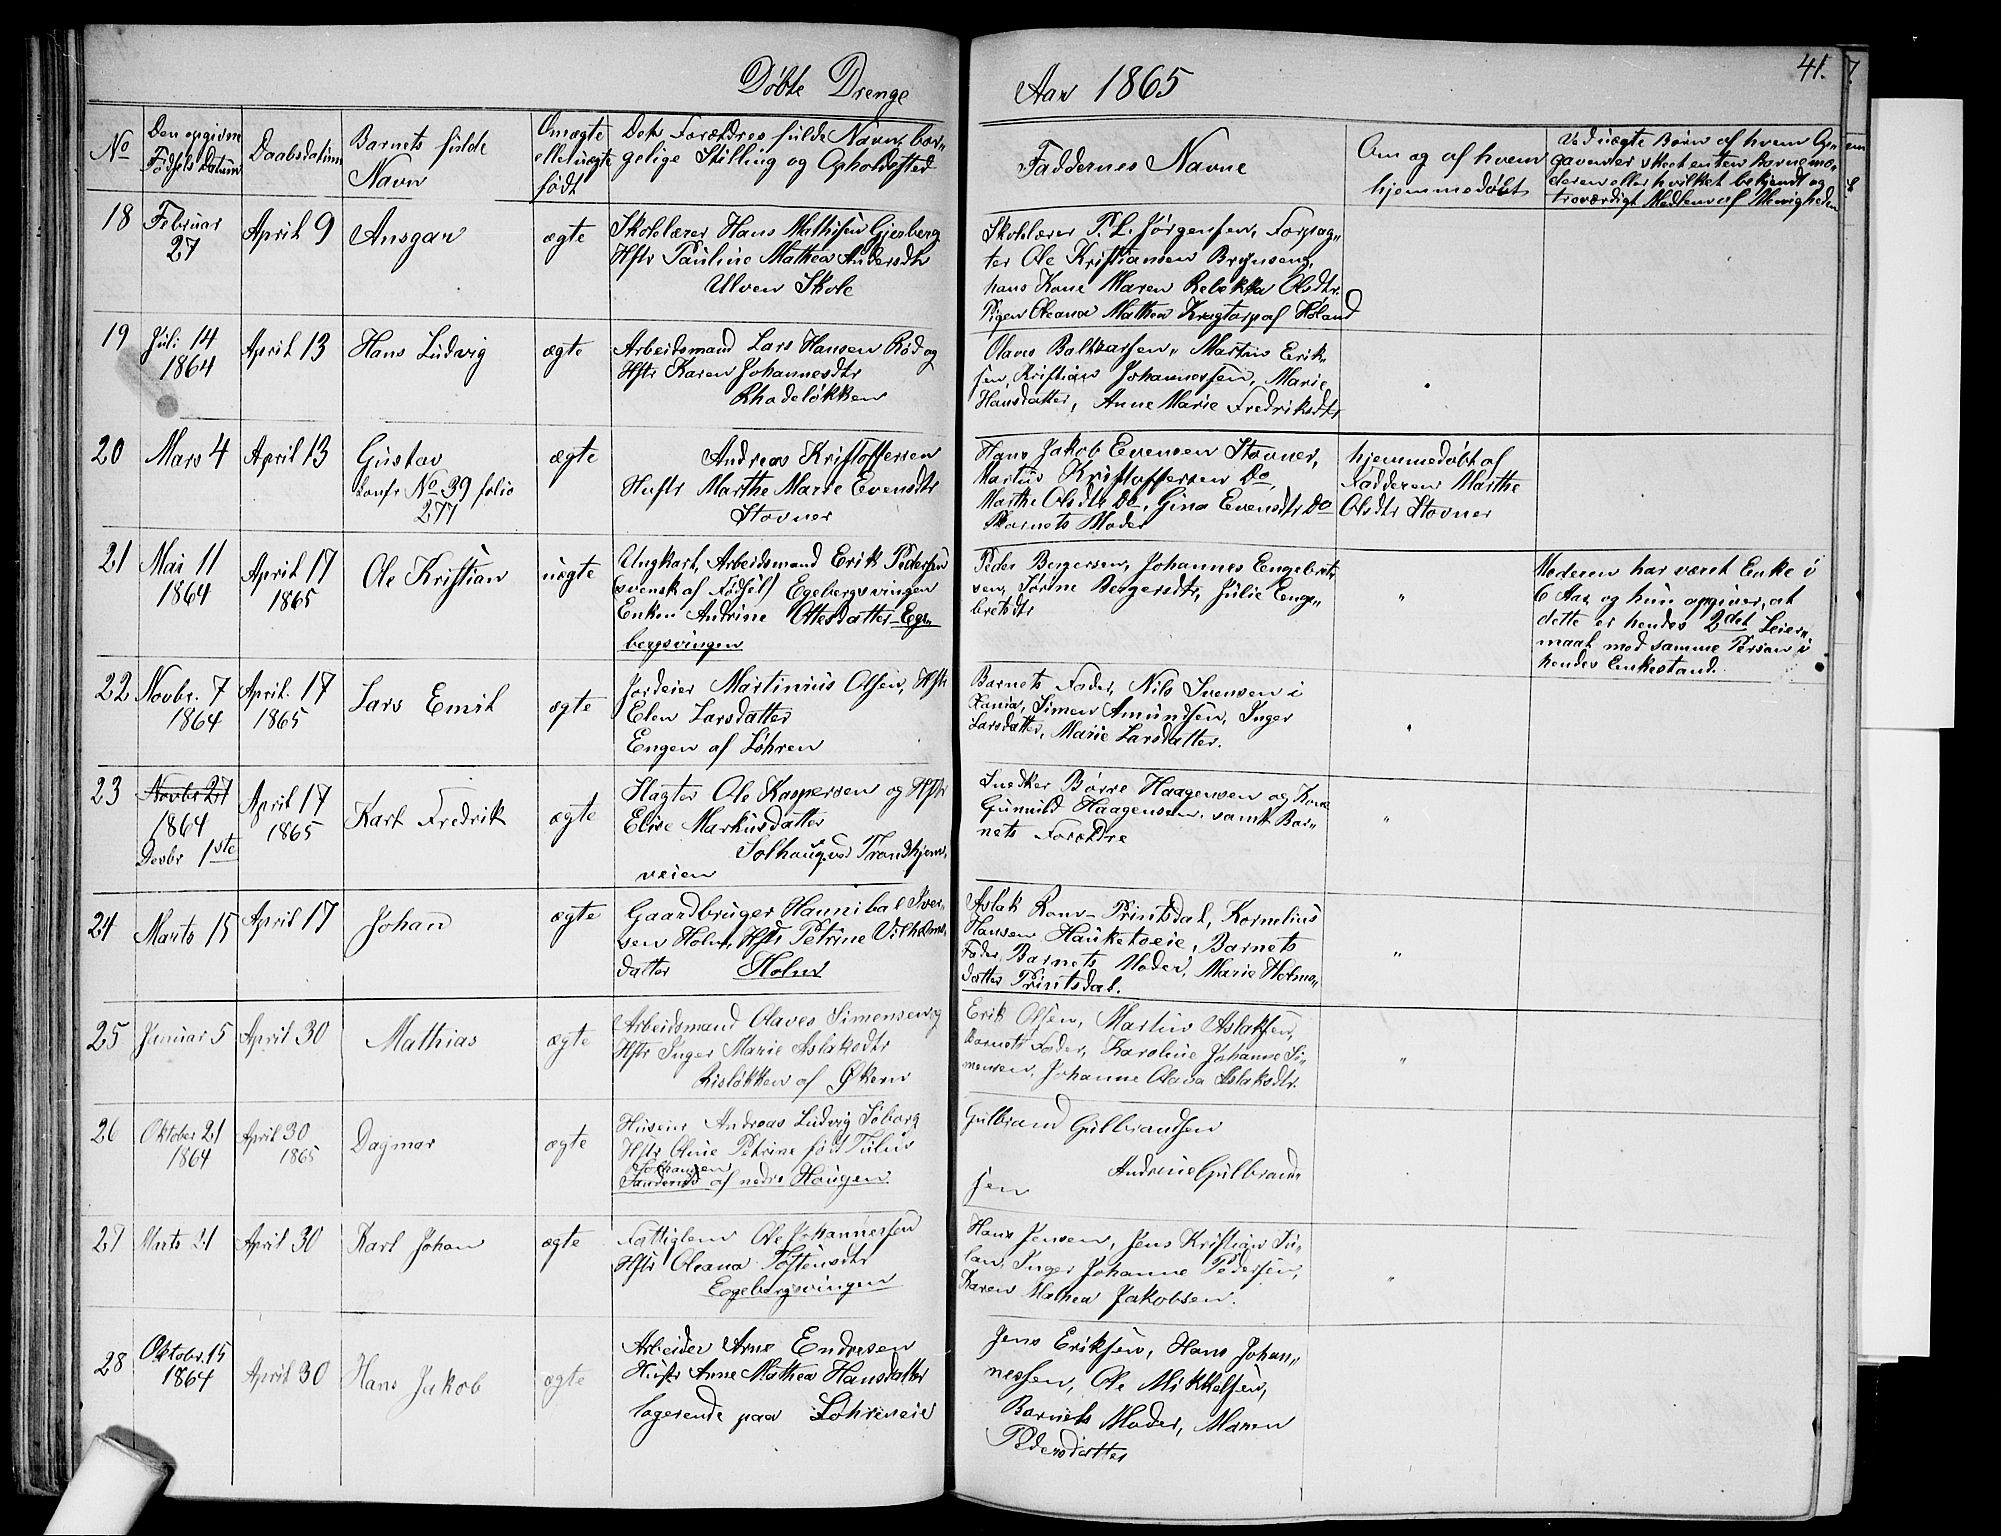 Døbte Drenge
Aar 1865
41.
No
Den opgivne
Fødsels Datum
Daabsdatum
Barnets fulde
Navn
Om ægte
eller uægte
født
Det Forældres fulde Navn, bor-
gelige Stilling og Opholdssted
Faddernes Navne
Om og af hvem
hjemmedøbt
Ved uægte Børn af hvem Op-
gaven er skeet enten Barnemo-
deren eller hvilket bekjendt og
troværdigt Medlem af Menigheden
18
Februar
27
April 9
Ansgar
ægte
Skolelærer Hans Mathisen Gjesberg
Hstr Pauline Mathea Andersdtr
Ulven Skole
Skolelærer P. L. Jørgensen, Forpag-
ter Ole Kristiansen Brynseng,
hans Kone Maren Rebekka Olsdtr.
Pigen Oleana Mathea Krogtorp af Høland
19
Juli 14
1864
April 13
Hans Ludvig
ægte
Arbeidsmand Lars Hansen Rød og
Hstr Karen Johannesdtr
Rhodeløkken
Olaus Balthzarsen, Martin Erik-
sen, Kristian Johannessen, Marie
Hansdatter, Anne Marie Fredriksdtr
20
Mars 4
April 13
Gustav
Confr No 39 folio
277
ægte
Andreas Kristoffersen
Hustr Marthe Marie Evensdtr
Stovner
Hans Jakob Evensen Stovner,
Martin Kristoffersen Do,
Marthe Olsdtr Do, Gina Evensdtr Do
Barnets Moder
hjemmedøbt af
Fadderen Marthe
Olsdtr Stovner
21
Mai 11
1864
April 17
1865
Ole Kristian
uægte
Ungkarl, Arbeidsmand Erik Pedersen
(svensk af Fødsel) Egebergsvingen
Enken Andrine Ottesdatter Ege-
bergsvingen
Peder Bergersen, Johannes Engebret-
sen, Sørine Bergersdtr, Julie Enge-
bretsdtr
"
Moderen har været Enke i
6 Aar og hun opgiver, at
dette er hendes 2det Leier-
maal med samme Person i
hendes Enkestand.
22
Novbr. 7
1864
April. 17
1865
Lars Emil
ægte
Jordeier Martinius Olsen, Hstr
Elen Larsdatter
Engen af Løhren
Barnets Fader, Nils Svensen i
Xania, Simen Amundsen, Inger
Larsdatter, Marie Larsdatter.
"
23
Novbr 27
1864
Decbr 1ste
April 17
1865
Karl Fredrik
ægte
Slagter Ole Kaspersen og Hstr
Elise Markusdatter
Solhaug ved Trondhjems-
veien
Snedker Børre Haagensen og Kone
Gunnild Haagensen. samt Bar-
nets Forældre
"
24
Marts 15
April 17
Johan
ægte
Gaardbruger Hannibal Sver-
sen Holm, Hstr Petrine Vilhelms-
datter Holm
Aslak Prinsdal, Kornelius
Hansen Hauketoeie, Barnets
Fader, Barnets Moder, Marie Holms-
datter Printsdal.
"
25
Januar 5
April 30
Mathias
ægte
Arbeidsmand Olaves Simensen og
Hstr Inger Marie Aslaksdtr
Risløkken af Økern
Erik Olsen, Martin Aslaksen,
Barnets Fader, Karoline Johanne Si-
mensen, Johanne Olava Aslaksdtr.
"
26
Oktober 21
1864
April 30
1865
Dagmar
ægte
Huseier Andreas Ludvig Soborg
Hstr Oline Petrine født Tulius
Solhaugen
af nedre Haugen
Gulbrand Gulbrandsen
Andrine Gulbrand-
sen
27
Marts 21
April 30
Karl Johan
ægte
Fattiglem Ole Johannessen
Hstr Oleana Tostensdtr
Egebergsvingen
Hans Jensen, Jens Kristian Ju-
lan, Inger Johanne Pedersen,
Karen Mathea Jakobsen.
"
28
Oktober. 15
1864
April 30
Hans Jakob
ægte
Arbeider Arne Endresen
Hustr Anne Mathea Hansdatter
logerende paa Løhreneie
Jens Eriksen, Hans Johan-
nessen, Ole Mikkelsen,
Barnets Moder, Maren
Pedersdatter